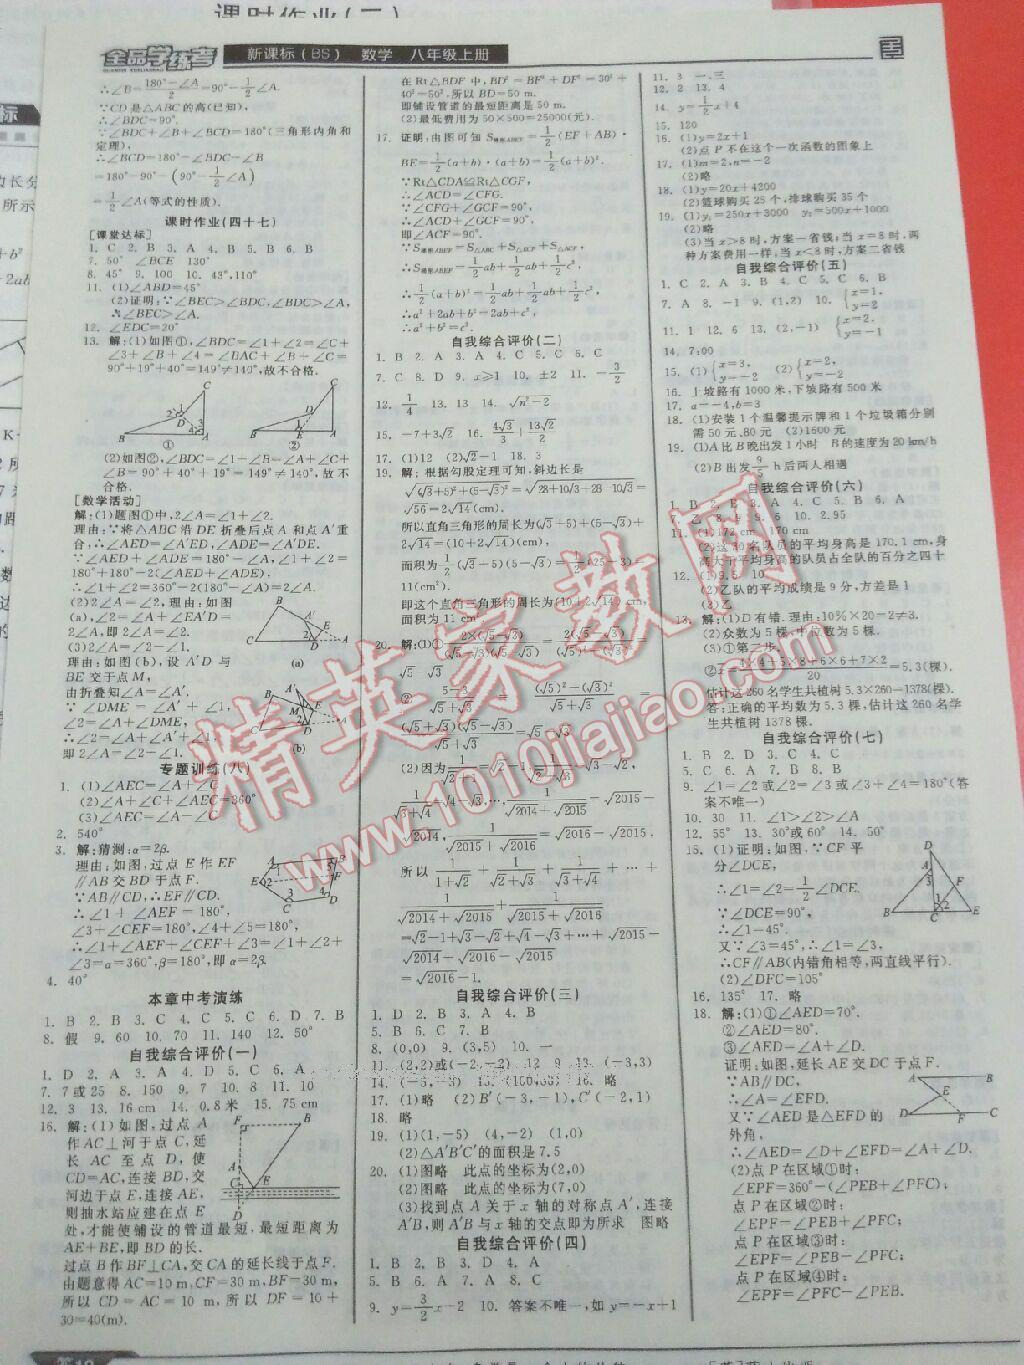 课时作业(二)
全品学练考 新课标(BS) 数学 八年级上册
∴∠B=(180°-∠A)/2=90°-1/2∠A.
∵CD是△ABC的高(已知),
∴∠BDC=90°.
∵∠BDC+∠B+∠BCD=180°(三角形内角和
定理),
∴∠BCD=180°-∠BDC-∠B
=180°-90°-(90°-1/2∠A)
=1/2∠A(等式的性质).
课时作业(四十七)
[课堂达标]
1. C 2. B 3. A 4. B 5. B 6. B
7. 50° ∠BCE 130°
8. 45° 9. 100 10. 43°,110°
11. (1)∠ABD=45°
(2)证明:∵∠BEC>∠BDC,∠BDC>∠A,
∴∠BEC>∠A.
12. ∠EDC=20°
13. 解:(1)如图①,∠BDC=∠1+∠2=∠C+
∠3+∠B+∠4=∠BAC+∠B+∠C=
90°+19°+40°=149°≠140°,故不合格.
(2)如图②,∠BDC=∠1-∠B=∠A+∠C+
∠B=90°+40°+19°=149°≠140°,故不
合格.
[数学活动]
解:(1)题图①中,2∠A=∠1+∠2.
理由:∵将△ABC沿DE折叠后点A和点A′重
合,∴∠AED=∠A′ED,∠ADE=∠A′DE.
∵∠AED+∠ADE=180°-∠A,∠1+∠2=
180°+180°-2(∠AED+∠ADE),
∴∠1+∠2=360°-2(180°-∠A)=2∠A.
(2)2∠A=∠2,理由:如图
(a),∠2=∠A+∠EA′D=
2∠A,即2∠A=∠2.
(3)2∠A=∠2-∠1.
理由:如图(b),设A′D与
BE交于点M,
由折叠知∠A=∠A′.
∵∠DME=∠A′+∠1,
∠2=∠A+∠DME,
∴∠2=∠A+∠A′+∠1,
即2∠A=∠2-∠1.
专题训练(八)
1. (1)∠AEC=∠A+∠C
(2)∠A+∠C+∠AEC=360°
(3)∠AEC=∠A-∠C
2. 540°
3. 解:猜测:α=2β.
理由:如图,过点E作EF
∥AB交BD于点F.
∵AB∥CD,∴EF∥CD.
∴∠1+∠AEF=180°,
∠3+∠CEF=180°,∠4+∠5=180°,
∴∠1+∠AEF+∠CEF+∠3=∠1+∠2+
∠3=α=360°,β=180°,即α=2β.
4. 40°
本章中考演练
1. B 2. B 3. C 4. B 5. C 6. D 7. B
8. 假 9. 60 10. 70 11. 140 12. 50°
自我综合评价(一)
1. D 2. A 3. A 4. D 5. C 6. A
7. 7或25 8. 150 9. 7 10. 8 11. 10
12. 3 13. 16 cm 14. 0.8米 15. 75 cm
16. 解:(1)如图,过点A
作AC⊥河于点C,延
长AC至点D,使
CD=AC,连接BD,交
河边于点E,连接AE,
则抽水站应建在点E
处,才能使铺设的管道最短,最短距离为
AE+BE,即BD的长.
过点B作BF⊥CA,交CA的延长线于点F.
由题意得AC=10 m,CF=30 m,BF=30 m,
所以CD=AC=10 m,所以DF=10+
30=40(m).
在Rt△BDF中,BD²=BF²+DF²=30²+
40²=50².所以BD=50 m.
即铺设管道的最短距离是50 m.
(2)最低费用为50×500=25000(元).
17. 证明:由图可知S梯形ABEF=1/2(EF+AB)·
BE=1/2(a+b)·(a+b)=1/2(a+b)².
∵Rt△CDA≌Rt△CGF,
∴∠ACD=∠CFG.
∵∠CFG+∠GCF=90°,
∴∠ACD+∠GCF=90°,
即∠ACF=90°.
∵S梯形ABEF=S△ABC+S△CEF+S△ACF,
∴S梯形ABEF=1/2ab+1/2ab+1/2c²,
∴1/2(a+b)²=1/2ab+1/2ab+1/2c²,
∴a²+2ab+b²=2ab+c²,
∴a²+b²=c².
自我综合评价(二)
1. B 2. A 3. A 4. C 5. C 6. C
7. C 8. D 9. x≥1 10. ±2 11. -3/2
12. 1/4 13. 13 14. √(n²-2)
15. -7+3√2 16. 4√3/3 13√2/2
17. (1)12 (2)√2-1 18. 3
19. 解:根据勾股定理可知,斜边长是
√((√3+5)²+(5-√3)²)=√(28+10√3+28-10√3)
=√56=2√14(cm),
所以直角三角形的周长为(√3+5)+(5-√3)+
2√14=(10+2√14)(cm),
面积为1/2(√3+5)(5-√3)=1/2(25-3)=
11(cm²).
即这个直角三角形的周长为(10+2√14)cm,
面积为11 cm².
(2)因为
√2016-1.
自我综合评价(三)
1. D 2. A 3. B 4. D 5. A
5. B 6. C 7. B
8. (0,0) 9. (3,5) 10. 一
11. (2,2)或(-2,-2) 12. 9 13. (-3,3)
17. (1)略 (2)B′(-3,-1),C′(-2,1)
18. 略
19. (1)(1,-5) (4,-2) (1,0)
(2)△A′B′C′的面积是7.5
20. (1)图略 此点的坐标为(2,0)
(2)图略 此点的坐标为(7,0)
(3)找到点A关于x轴的对称点A′,连接
A′B,则A′B与x轴的交点即为所求 图略
自我综合评价(四)
1. B 2. B 3. D 4. C
5. B 6. A 7. A 8. C
9. y=3/2x-2 10. 答案不唯一,如y=-x+1
11. 3 一、三
12. 2 13. 4
14. y=1/2x+4
15. 120
16. (1)y=2x+1
(2)点P不在这个一次函数的图象上
17. (1)m=2,n=-2
(2)略
18. (1)y=20x+4200
(2)篮球购买25个,排球购买35个
19. (1)y₁=250x+3000 y₂=500x+1000
(2)略
(3)当x>8时,方案一省钱;当x=8时,两
种方案费用一样;当x<8时,方案二省钱
自我综合评价(五)
1. C 2. A 3. B 4. C 5. C 6. B
7. A 8. -1 9. (1,2) 10. {x=1, y=2
11. 1 12. 6 13. (2,-1) {x=2, y=-1
14. 7:00
15. (1){x=3, y=-2 (2){x=2, y=-2
16. 上坡路有1000米,下坡路有500米
17. a=-4,b=3
18. (1)安装1个温馨提示牌和1个垃圾箱分别
需50元、80元 (2)1600元
19. (1)A比B晚出发1小时 B的速度为20 km/h
(2)B出发9/5 h后两人相遇
自我综合评价(六)
10. 2.95
11. (1)172 cm 170 cm
(2)这10名队员的平均身高是170.1 cm,身
高大于平均身高的队员占全队的百分之四十
12. (1)9.5 10
(2)乙队的平均成绩是9分,方差是1
(3)乙
13. 解:(1)D有错.理由:10%×20=2≠3.
(2)众数为5棵,中位数为5棵.
(3)①第二步.
②x̄=(4×4+5×8+6×6+7×2)/20=5.3(棵).
估计这260名学生共植树5.3×260=1378(棵).
答:正确的平均数为5.3棵,估计这260名学
生共植树1378棵.
自我综合评价(七)
1. B 2. D 3. C 4. C
5. C 6. A 7. B 8. B
9. ∠1=∠2或∠2=∠3或∠3+∠4=180°(答
案不唯一)
10. 30 11. ∠1>∠2>∠A
12. 55° 13. 30°或60° 14. 50°
15. (1)证明:如图,∵CF平
分∠DCE,
∴∠1=∠2=1/2∠DCE.
∵∠DCE=90°,
∴∠1=45°.
又∵∠3=45°,∴∠1=∠3,
∴CF∥AB(内错角相等,两直线平行).
(2)∠DFC=105°
16. 135° 17. 略
18. 解:(1)①∠AED=70°.
②∠AED=80°.
③∠AED=∠A+∠D.
证明:如图,延长AE交DC于点F.
∵AB∥DC,
∴∠A=∠EFD.
又∵∠AED是△EFD的
外角,
∴∠AED=∠D+∠EFD=∠A+∠D.
(2)点P在区域①时:
∠EPF=360°-(∠PEB+∠PFC);
点P在区域②时:
∠EPF=∠PEB+∠PFC;
点P在区域③时:
∠EPF=∠PEB-∠PFC;
点P在区域④时:
∠EPF=∠PFC-∠PEB.
精英家教网
www.1010jiajiao.com